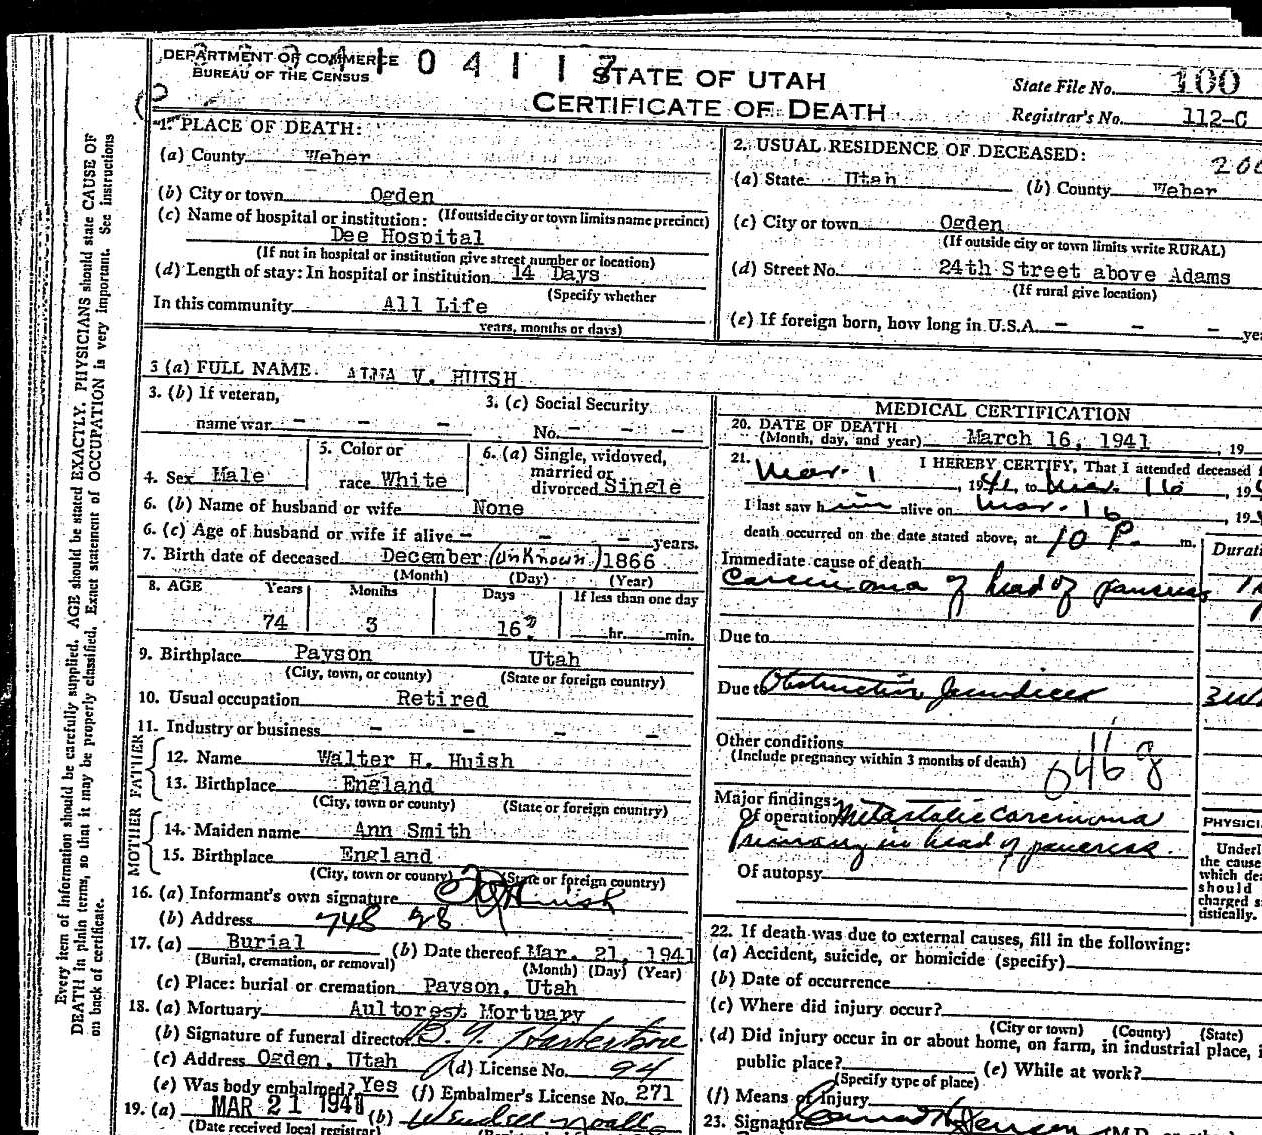 DEPARTMENT OF COMMERCE
BUREAU OF THE CENSUS
0 4 1 1 7
STATE OF UTAH
CERTIFICATE OF DEATH
State File No. 100
Registrar's No. 112-C
1. PLACE OF DEATH:
(a) County Weber
(b) City or town Ogden
(c) Name of hospital or institution: (If outside city or town limits name precinct)
Dee Hospital
(If not in hospital or institution give street number or location)
(d) Length of stay: In hospital or institution 14 Days
(Specify whether
In this community All Life
years, months or days)
2. USUAL RESIDENCE OF DECEASED:
200
(a) State Utah (b) County Weber
(c) City or town Ogden
(If outside city or town limits write RURAL)
(d) Street No. 24th Street above Adams
(If rural give location)
(e) If foreign born, how long in U.S.A. - - - ye
3 (a) FULL NAME. ALMA V. HUISH
3. (b) If veteran,
name war - - -
3. (c) Social Security
No. - - -
4. Sex Male
5. Color or
race White
6. (a) Single, widowed,
married or
divorced Single
6. (b) Name of husband or wife None
6. (c) Age of husband or wife if alive - - - years.
7. Birth date of deceased December (unknown) 1866
(Month) (Day) (Year)
8. AGE Years Months Days If less than one day
74 3 16? hr. min.
9. Birthplace Payson Utah
(City, town, or county) (State or foreign country)
10. Usual occupation Retired
11. Industry or business - - - -
FATHER
12. Name Walter H. Huish
13. Birthplace England
(City, town or county) (State or foreign country)
MOTHER
14. Maiden name Ann Smith
15. Birthplace England
(City, town or county) (State or foreign country)
16. (a) Informant's own signature Huish
(b) Address 748 28
17. (a) Burial (b) Date thereof Mar. 21, 1941
(Burial, cremation, or removal) (Month) (Day) (Year)
(c) Place: burial or cremation Payson, Utah
18. (a) Mortuary Aultorest Mortuary
(b) Signature of funeral director
(c) Address Ogden, Utah (d) License No. 94
(e) Was body embalmed? Yes (f) Embalmer's License No. 271
19. (a) MAR 21 1941 (b)
(Date received local registrar)
MEDICAL CERTIFICATION
20. DATE OF DEATH
(Month, day, and year) March 16, 1941, 19
21. I HEREBY CERTIFY, That I attended deceased f
Mar. 1, 1941, to Mar. 16, 194
I last saw him alive on Mar. 16, 194
death occurred on the date stated above, at 10 P. m.
Durati
Immediate cause of death
Carcinoma of head of pancreas
Due to
Due to Obstructive Jaundice
Other conditions
(Include pregnancy within 3 months of death)
046 g
Major findings:
Of operation Metastatic Carcinoma
Primary in head of pancreas.
Of autopsy
PHYSICI
Underl
the cause
which de
should
charged s
tistically.
22. If death was due to external causes, fill in the following:
(a) Accident, suicide, or homicide (specify)
(b) Date of occurrence
(c) Where did injury occur?
(City or town) (County) (State)
(d) Did injury occur in or about home, on farm, in industrial place, i
public place? (e) While at work?
(Specify type of place)
(f) Means of Injury
23. Signature
Every item of Information should be carefully supplied. AGE should be stated EXACTLY. PHYSICIANS should state CAUSE OF
DEATH in plain terms, so that it may be properly classified. Exact statement of OCCUPATION is very important. See instructions
on back of certificate.